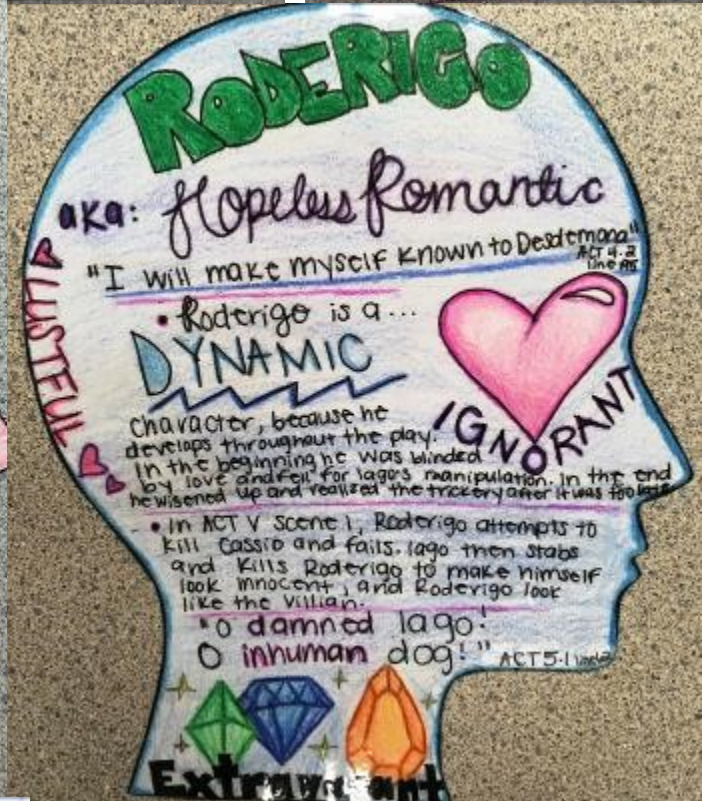 RODERIGO
aka: Hopeless Romantic
"I will make myself known to Desdemona"
ACT 4.2
line
LUSTFUL
• Roderigo is a...
DYNAMIC
IGNORANT
character, because he
develops throughout the play.
In the beginning he was blinded
by love and fell for Iago's manipulation. In the end
he wisened up and realized the trickery after it was too late
• In ACT V scene 1, Roderigo attempts to
kill Cassio and fails. Iago then stabs
and kills Roderigo to make himself
look innocent, and Roderigo look
like the villian.
"O damned Iago!
O inhuman dog!" ACT 5.1
Extravagant